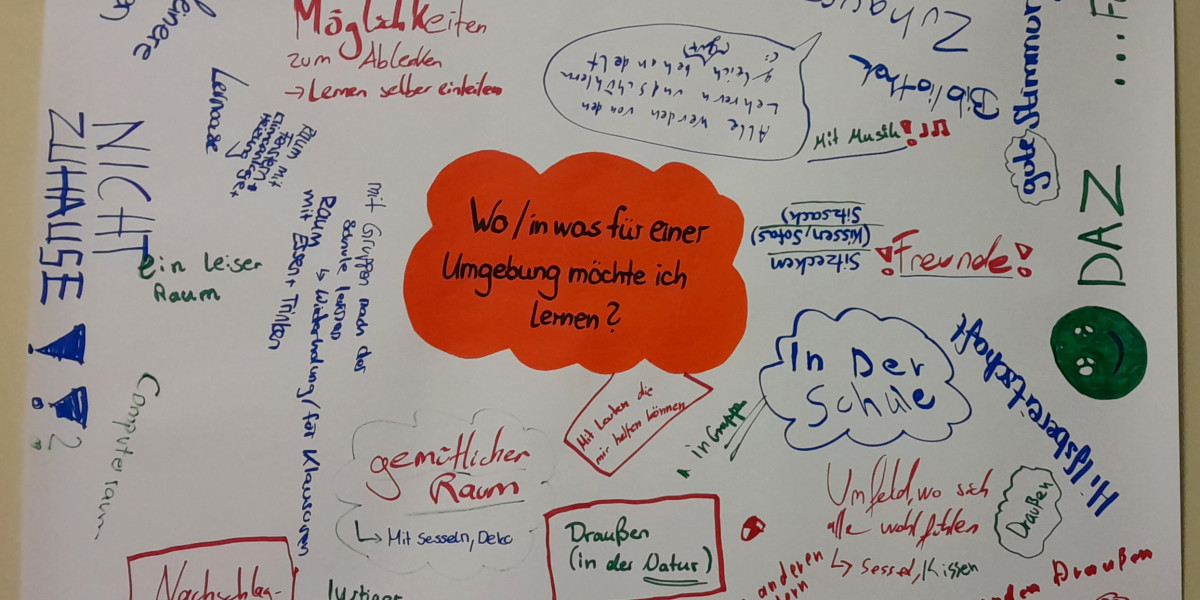 Möglichkeiten
zum Ableden
→ Lernen selber einteilen
Zuhause
gute Stimmung
... F
Bibliothek
Alle werden von den
Lehrern und Schühlern
gleich behandelt
(gut)
Mit Musik!
Lernoase
NICHT
ZUHAUSE !
ein leiser
Raum
Raum mit
Fenstern +
mit Gruppen nach der
Schule lernen
↳ Wiederholung / für Klausuren
Raum
mit Essen + Trinken
Computerraum
Wo/in was für einer
Umgebung möchte ich
lernen?
Sitzecken
(Kissen, Sofas)
Sitzsack)
!Freunde!
DAZ
In Der
Schule
Hilfsbereitschaft
Mit Leuten die
mir helfen können
in Gruppe
gemütlicher
Raum
↳ Mit Sesseln, Deko
Draußen
(in der Natur)
Umfeld, wo sich
alle wohl fühlen
↳ Sessel, Kissen
Draußen
anderen
Draußen
Nachschlag-
lustiger